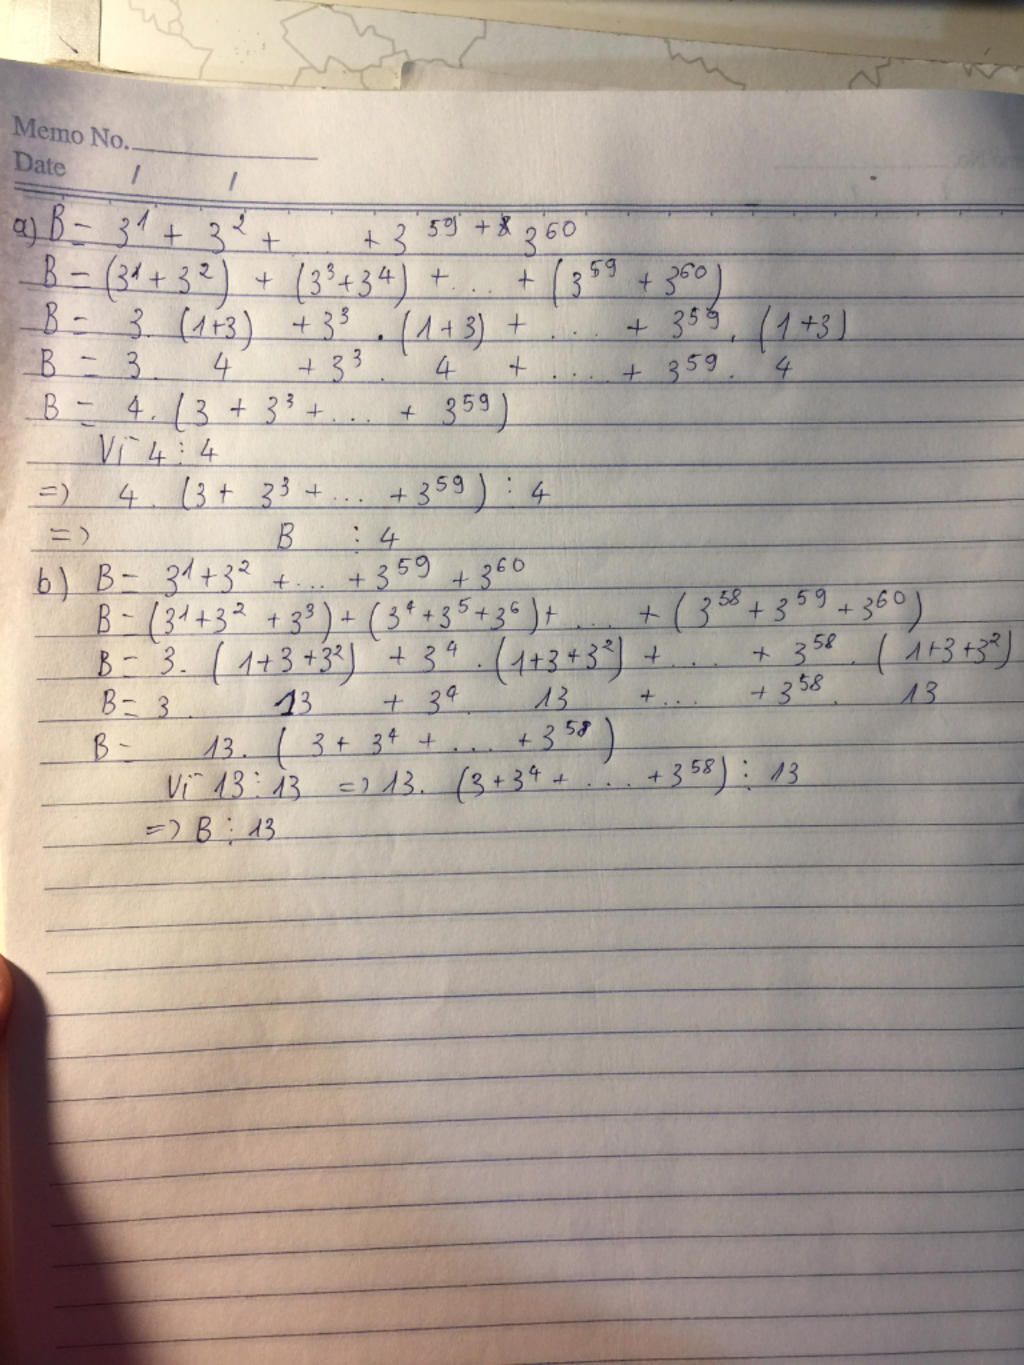 Memo No.
Date / /
a) B = 3¹ + 3² + ... + 3⁵⁹ + 3⁶⁰
B = (3¹ + 3²) + (3³ + 3⁴) + ... + (3⁵⁹ + 3⁶⁰)
B = 3. (1+3) + 3³ . (1+3) + .... + 3⁵⁹. (1+3)
B = 3. 4 + 3³. 4 + .... + 3⁵⁹. 4
B = 4. (3 + 3³ + ... + 3⁵⁹)
Vì 4 ⋮ 4
=> 4. (3 + 3³ + ... + 3⁵⁹) ⋮ 4
=> B ⋮ 4
b) B = 3¹ + 3² + ... + 3⁵⁹ + 3⁶⁰
B = (3¹ + 3² + 3³) + (3⁴ + 3⁵ + 3⁶) + ... + (3⁵⁸ + 3⁵⁹ + 3⁶⁰)
B = 3. (1+3+3²) + 3⁴ . (1+3+3²) + ... + 3⁵⁸. (1+3+3²)
B = 3. 13 + 3⁴. 13 + ... + 3⁵⁸. 13
B = 13. (3 + 3⁴ + ... + 3⁵⁸)
Vì 13 ⋮ 13 => 13. (3 + 3⁴ + ... + 3⁵⁸) ⋮ 13
=> B ⋮ 13